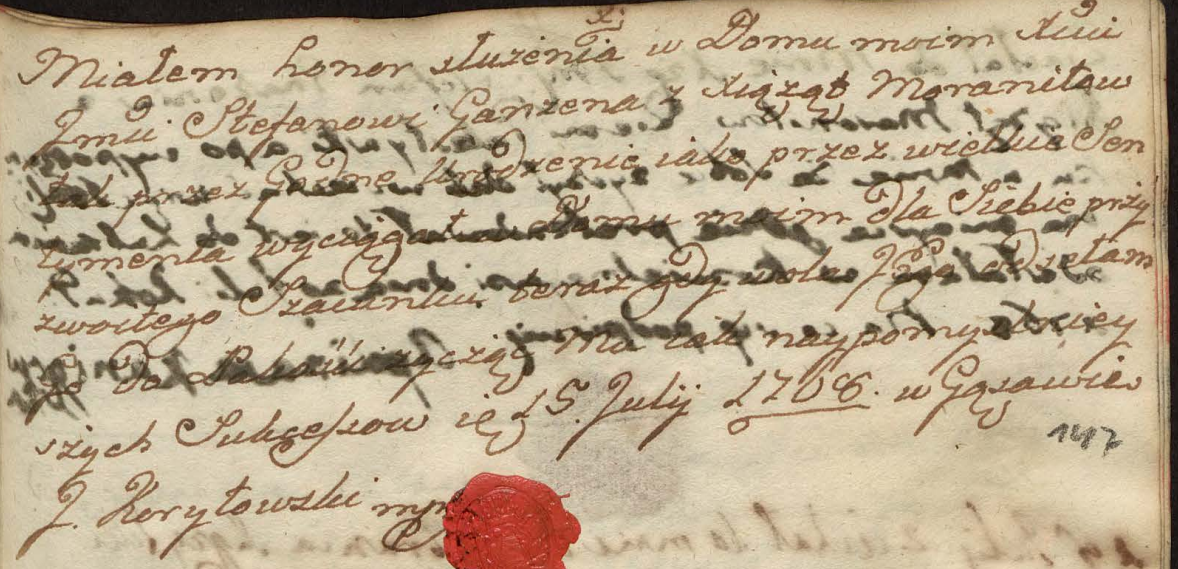 Xi
Miałem honor służenia w Domu moim Xciu
Jmci Stefanowi Ganzena z Xiążąt Moranitow
tak przez Godne Urodzenie iako przez wielkie Sen
tymenta wyciągał w Domu moim dla Siebie przy
zwoitego Szacunku. teraz gdy wola Jego odsełam
go do życząc Mu iak naypomyslniey
szych Sukcessow ię 15 Julij 1768. w Gąsawie
1417
J. Korytowski mp